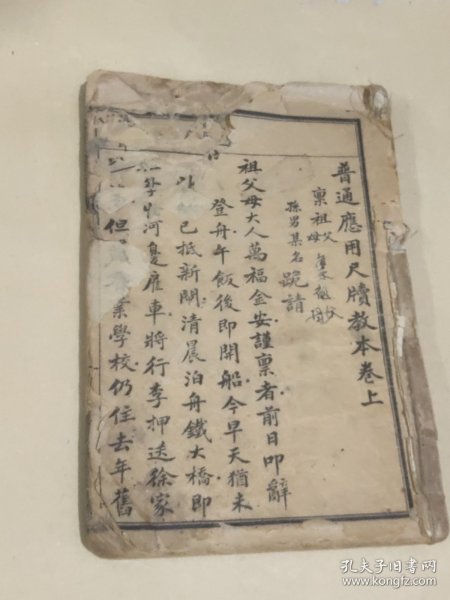 普通應用尺牘教本卷上
稟祖父母
孫男某名 跪請
祖父母大人萬福金安謹稟者前日叩辭
登舟午飯後即開船今早天猶未
已抵新閘清晨泊舟鐵大橋即
河夏雇車將行李押送徐家
但 業學校仍住去年舊
孔夫子旧书网
www.kongfz.com